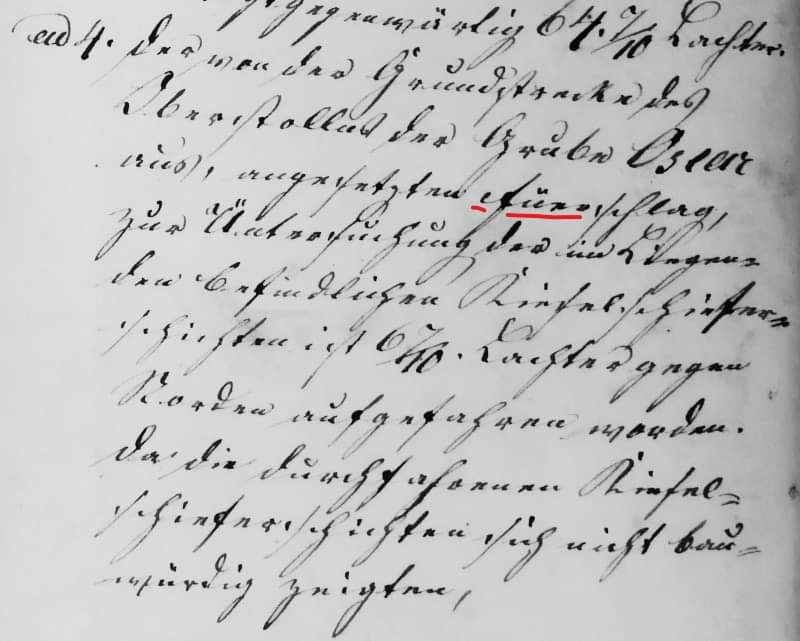 gegenwärtig 64. 7/10 Lachter.
ad 4. der von der Grundstrecke des
Oberstollns der Grube Oscar
aus, angesetzten schlag,
zur Untersuchung der im Liegen=
den befindlichen Kieselschiefer=
schichten ist 6 7/10. Lachter gegen
Norden aufgefahren worden.
Da die durchfahrenen Kiesel=
schieferschichten sich nicht bau=
würdig zeigten,